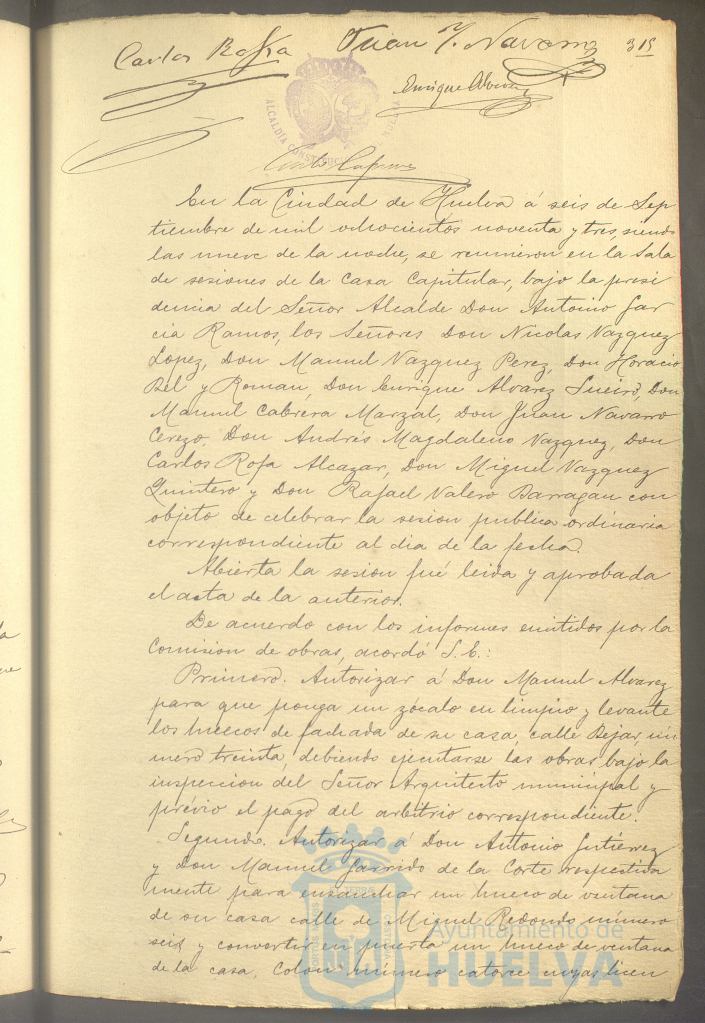 Carlos Rofa Juan J. Navarro 315
Enrique Alvarez
ALCALDÍA CONSTITUCIONAL HUELVA
En la Ciudad de Huelva á seis de Sep
tiembre de mil ochocientos noventa y tres, siendo
las nueve de la noche, se reunieron en la Sala
de sesiones de la Casa Capitular, bajo la presi
dencia del Señor Alcalde Don Antonio Gar
cia Ramos, los Señores Don Nicolas Vazquez
Lopez, Don Manuel Vazquez Perez, Don Horacio
Bel y Roman, Don Enrique Alvarez Sueiro, Don
Manuel Cabrera Marzal, Don Juan Navarro
Cerezo, Don Andrés Magdaleno Vazquez, Don
Carlos Rofa Alcazar, Don Miguel Vazquez
Quintero y Don Rafael Valero Barragan con
objeto de celebrar la sesion publica ordinaria
correspondiente al dia de la fecha.
Abierta la sesion fué leida y aprobada
el acta de la anterior.
De acuerdo con los informes emitidos por la
Comision de obras, acordó S.E.:
Primero. Autorizar á Don Manuel Alvarez
para que ponga un zócalo en limpio y levante
los huecos de fachada de su casa calle Bejar, nú
mero treinta, debiendo ejecutarse las obras bajo la
inspeccion del Señor Arquitecto municipal y
prévio el pago del arbitrio correspondiente.
Segundo. Autorizar á Don Antonio Gutiérrez
y Don Manuel Garrido de la Corte respectiva
mente para ensanchar un hueco de ventana
de su casa calle de Miguel Redondo número
seis y convertir en puerta un hueco de ventana
de la casa, Colon número catorce cuyas licen
Ayuntamiento de
HUELVA